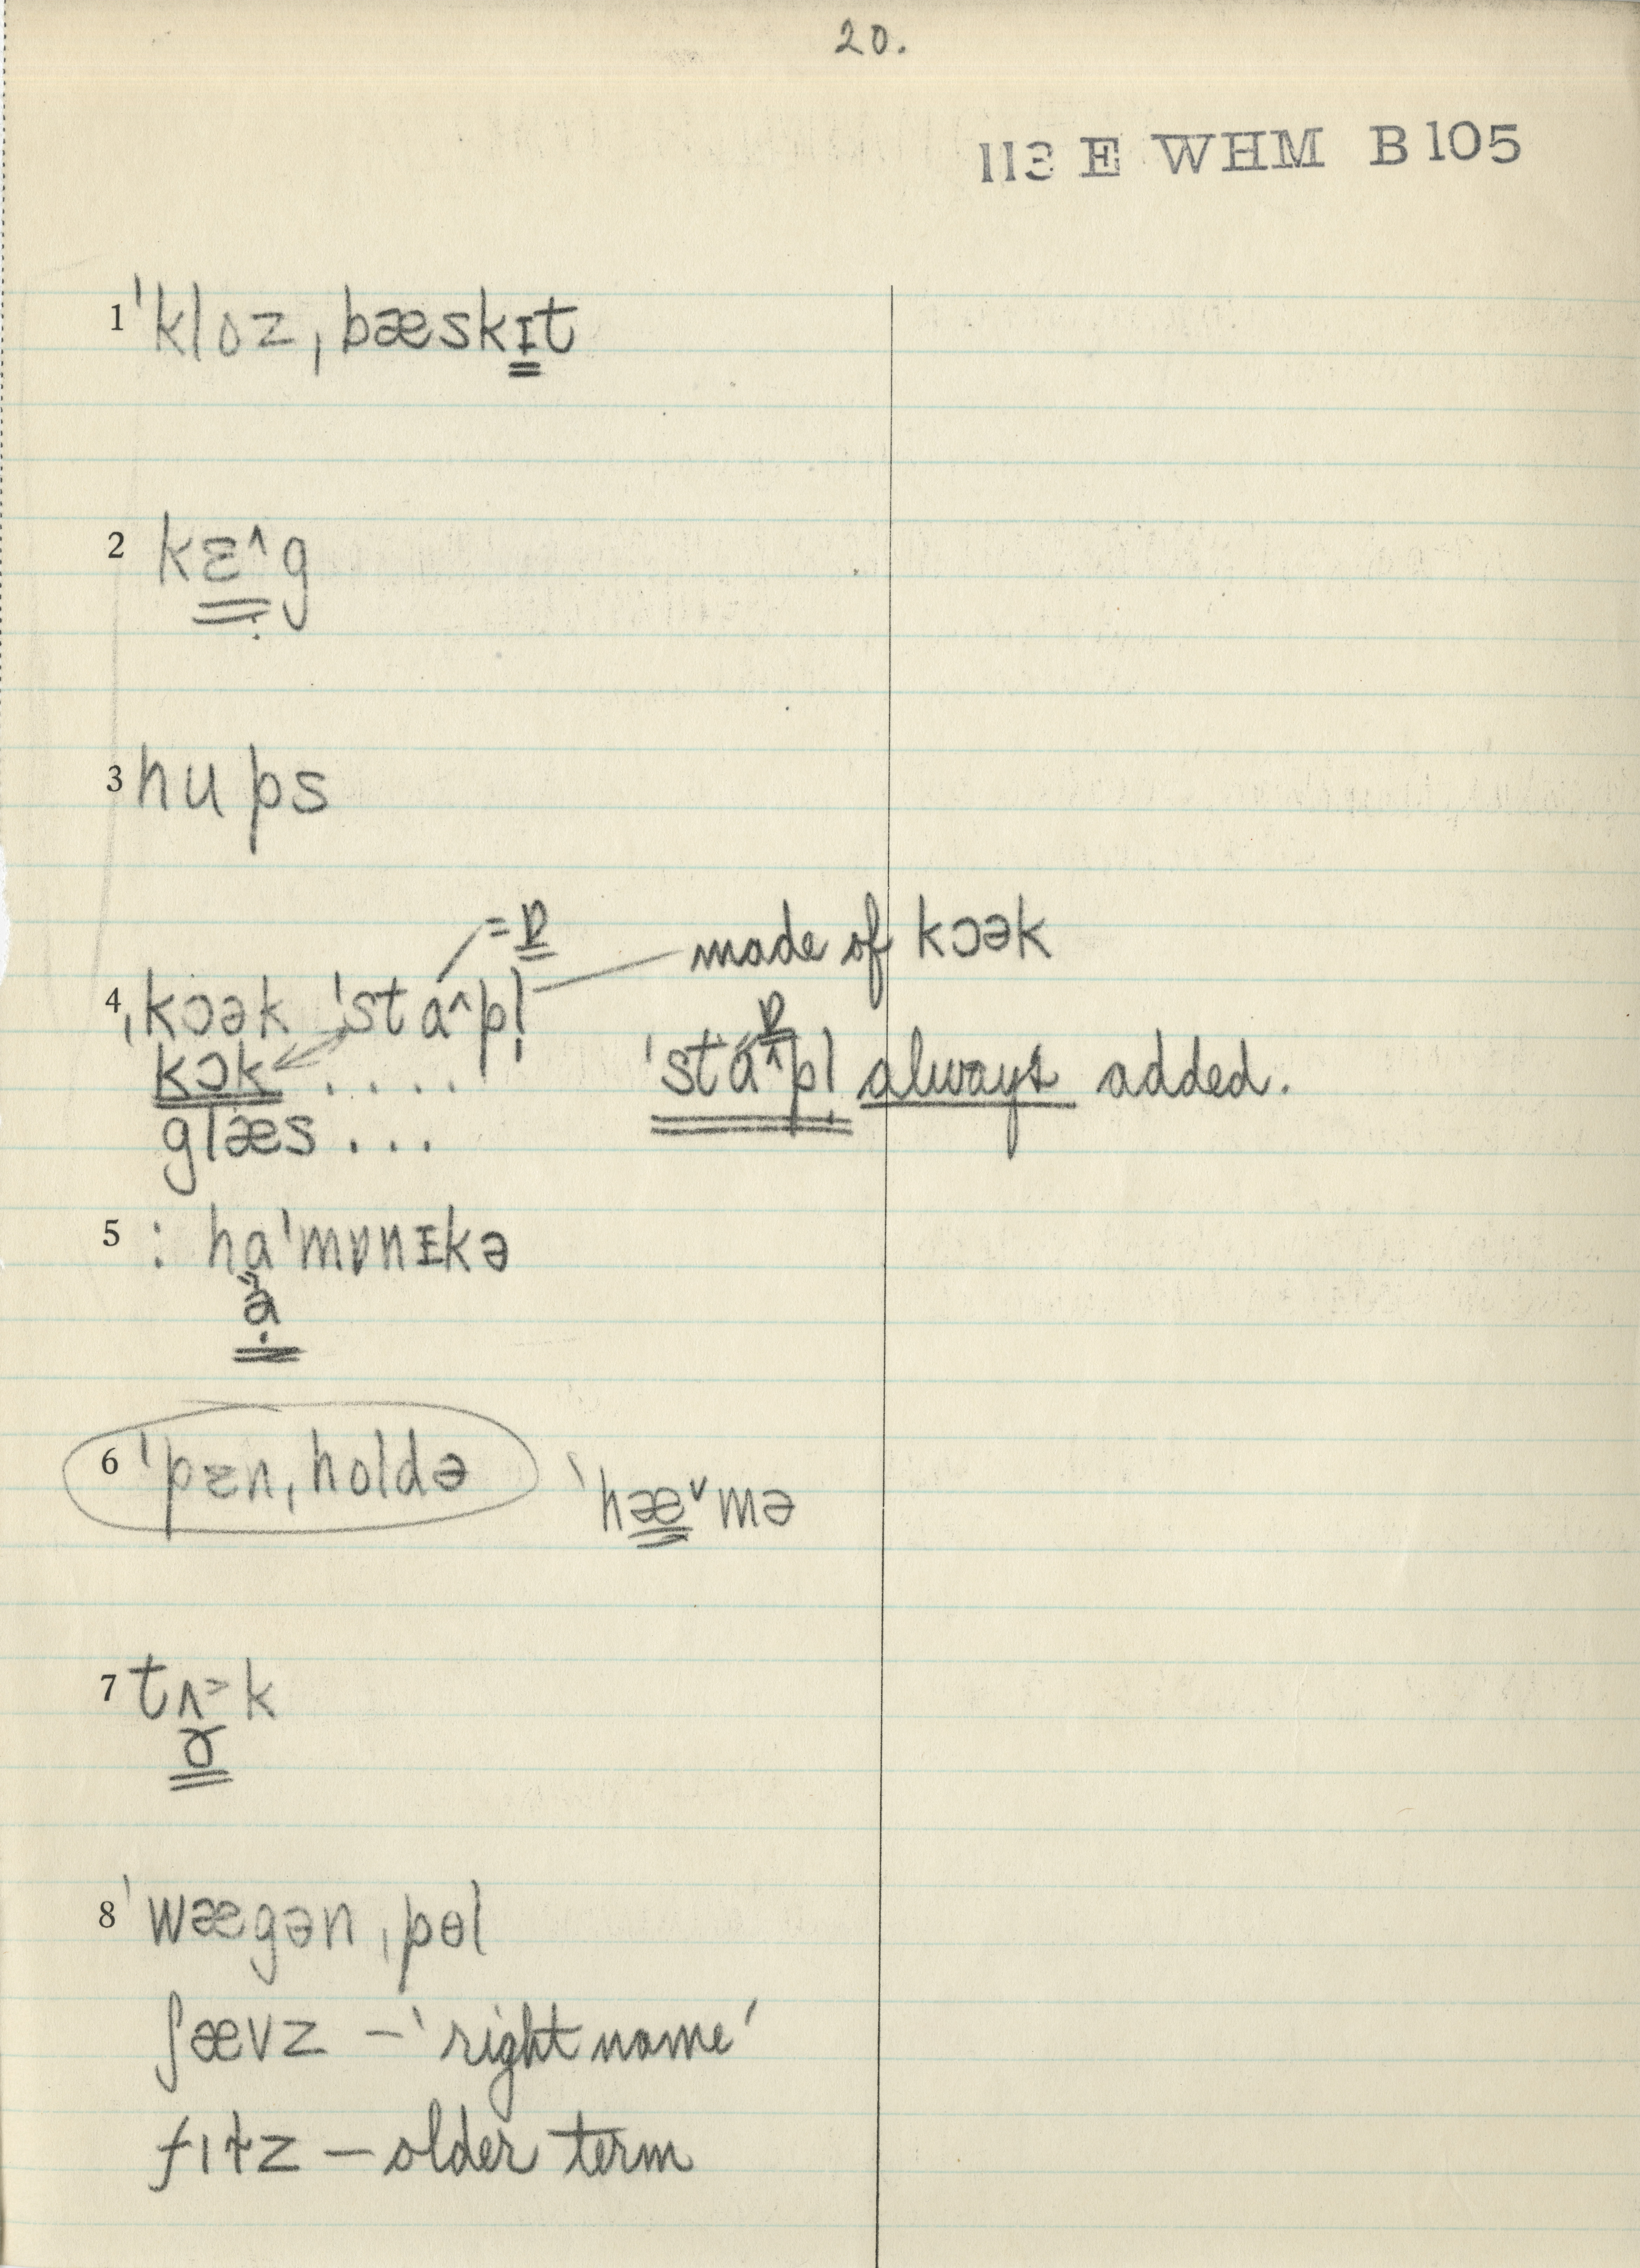 20.
113 E WHM B105
1 ˈkloz ˌbæskɪt
2 kɛ^g
3 hups
=ɒ
made of kɔək
4 ˌkɔək ˈstɑ^pl̩
ɒ
kɔk .... ˈstɑ^pl̩ always added.
glæs ...
5 : hɑˈmɒnɪkə
6 ˈpɛn ˌholdə ˈhæ˅mə
7 tʌ˃k
ɤ
8 ˈwægən ˌpɵl
ʃævz – 'right name'
– older term